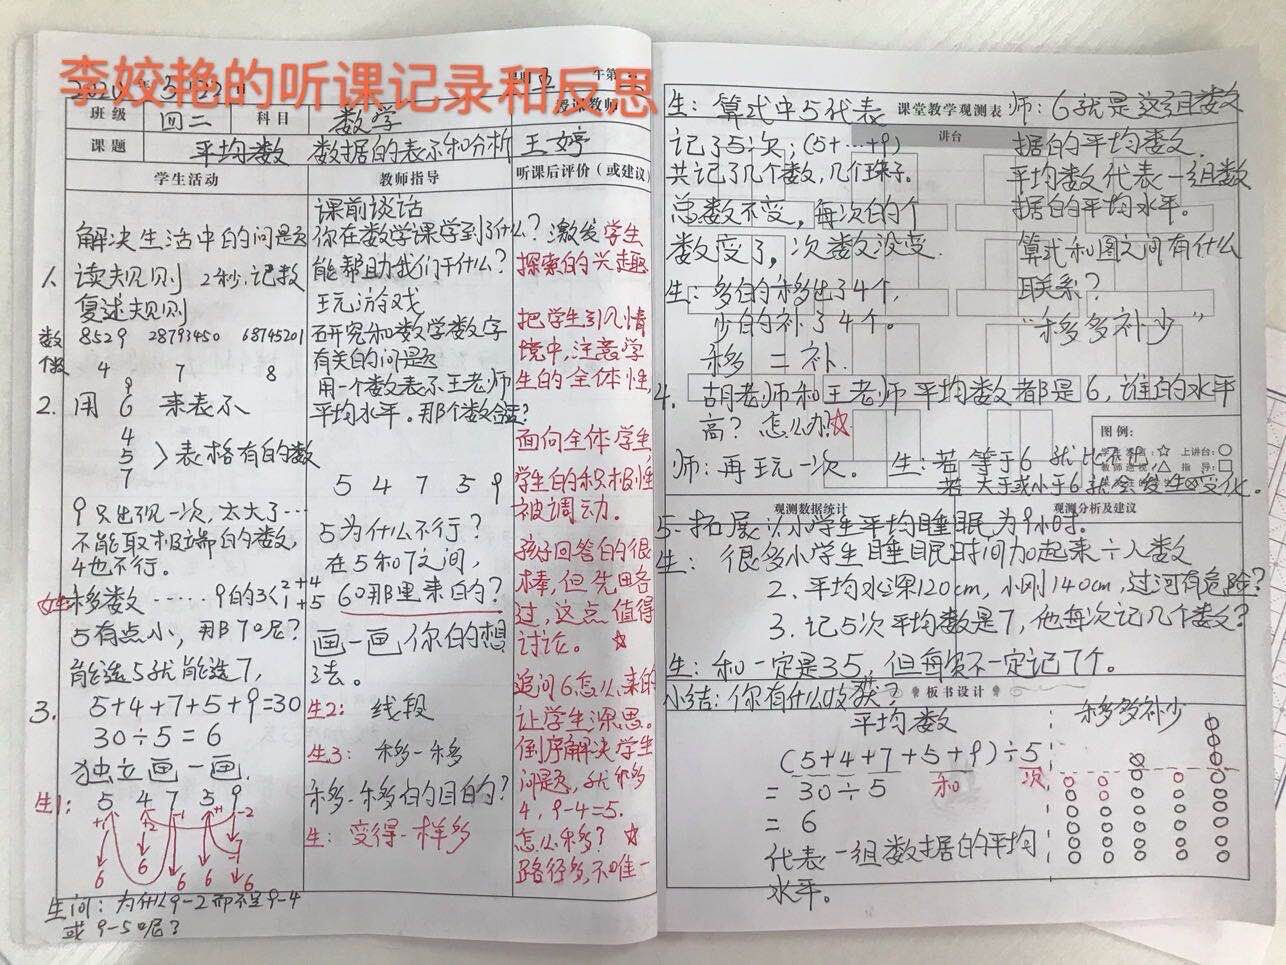 李姣艳的听课记录和反思
班级 四二 科目 数学 授课教师
课题 平均数 数据的表示和分析 王婷
学生活动
解决生活中的问题
1、读规则 2秒记数
复述规则
数 8529 28793450 68745201
个数 4 7 8
2. 用 6 来表示
9
4
5 〉表格有的数
7
9只出现一次,太大了…
不能取极端的数,
4也不行。
移多数……9的3〈2+4 1+5
5有点小,那7呢?
能选5就能选7,
3. 5+4+7+5+9=30
30÷5=6
独立画一画.
生1: 5 4 7 5 9
+1 +2 -1 +1 -2
-1
6 6 6 6 6
生问:为什么9-2而不是9-4
或9-5呢?
教师指导
课前谈话
你在数学课学到了什么?
能帮助我们干什么?
玩游戏
研究和数学数字
有关的问题
用一个数表示王老师
平均水平。那个数合适?
5 4 7 5 9
5为什么不行?
在5和7之间,
6那里来的?
画一画,你的想
法。
生2: 线段
生3: 移一移
移一移的目的?
生:变得一样多
听课后评价(或建议)
激发学生
探索的兴趣
把学生引入情
境中,注意学
生的全体性
面向全体学生,
学生的积极性
被调动。
孩子回答的很
棒,但先略
过,这点值得
讨论。☆
追问6怎么来的
让学生深思。
倒序解决学生
问题,就移
4,9-4=5.
怎么移?☆
路径多,不唯一
课堂教学观测表
讲台
生:算式中5代表
记了5次;(5+…+9)
共记了几个数,几个珠子。
总数不变,每次的个
数变了,次数没变.
生:多的移出了4个,
少的补了4个。
移=补.
师:6就是这组数
据的平均数.
平均数代表一组数
据的平均水平。
算式和图之间有什么
联系?
“移多补少”
4. 胡老师和王老师平均数都是6,谁的水平
高?怎么办☆
图例:
上讲台:○
指导:□
师:再玩一次。 生:若等于6就比不出,
若大于或小于6就会发生变化.
观测数据统计 观测分析及建议
5.拓展:1.小学生平均睡眠为9小时.
生:很多小学生睡眠时间加起来÷人数
2.平均水深120cm,小刚140cm,过河有危险?
3.记5次平均数是7,他每次记几个数?
生:和一定是35,但每次不一定记7个。
小结:你有什么收获?
板书设计
平均数 移多补少
(5+4+7+5+9)÷5
= 30÷5 和 次
= 6
代表一组数据的平均
水平。